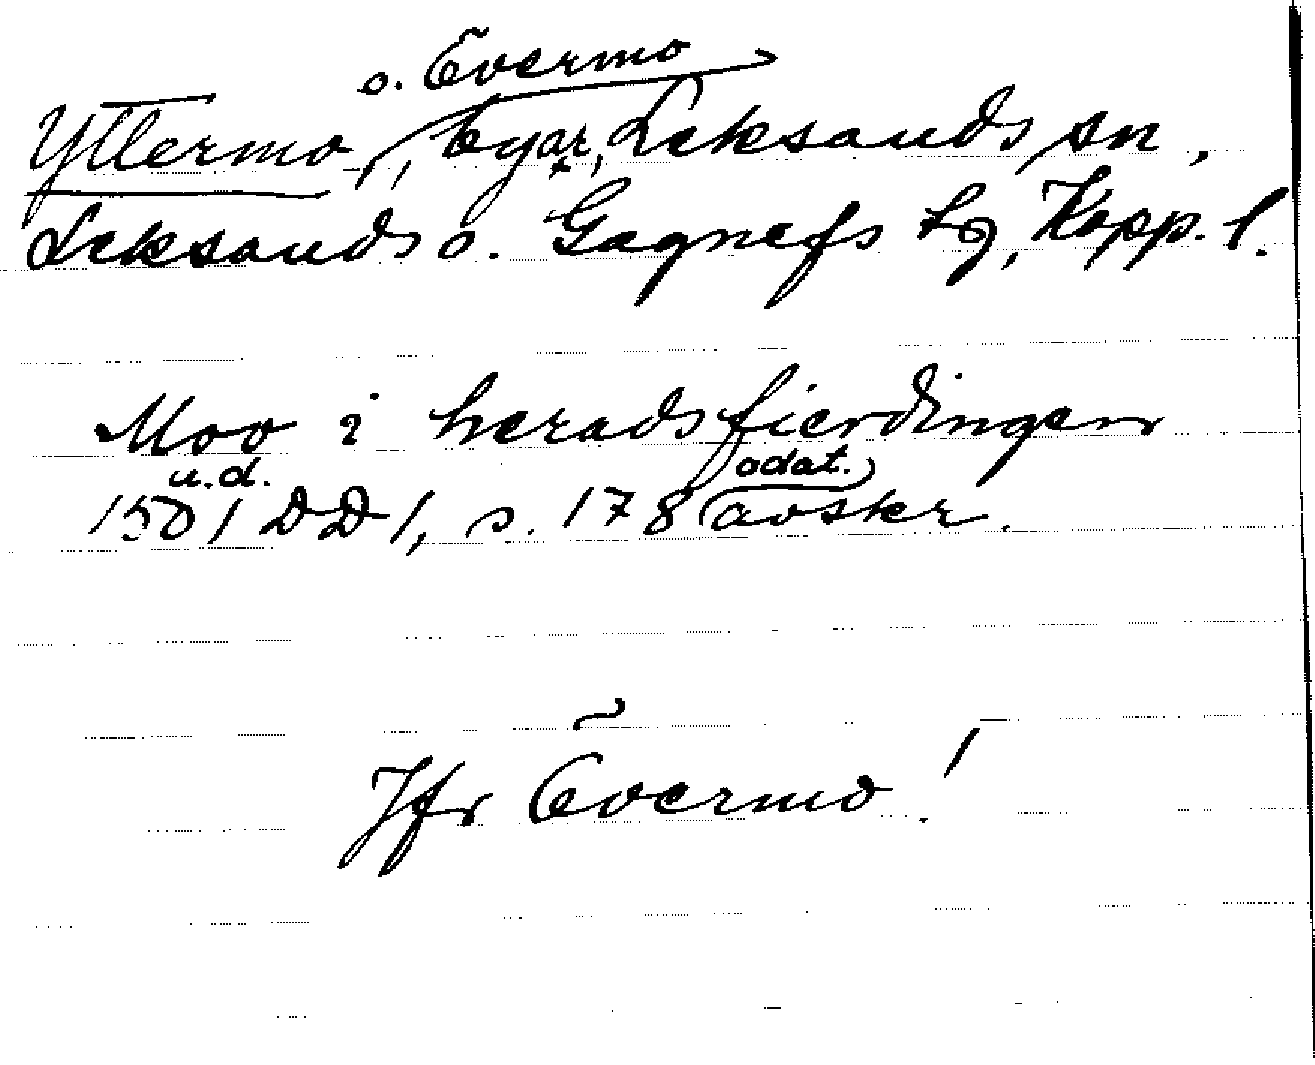 o. Övermo
Yttermo, byar, Leksands sn,
Leksands o. Gagnefs tg, Kopp. l.
Moo i heradsfierdingen
u.d. odat.
1501 DD1, s. 178 (avskr.)
Jfr Övermo!